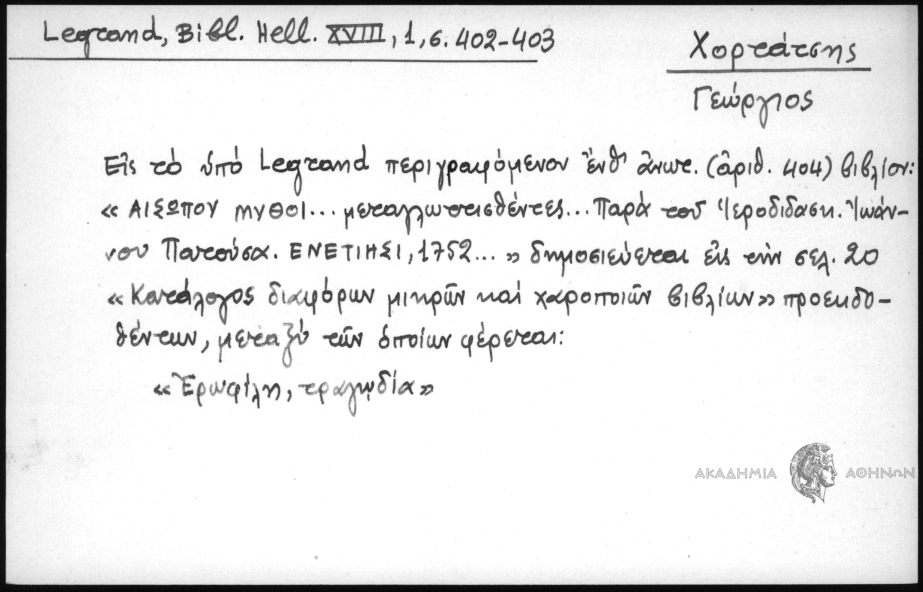 Legrand, Bibl. Hell. XVIII, 1, σ. 402-403
Χορτάτσης
Γεώργιος
Εἰς τὸ ὑπὸ Legrand περιγραφόμενον ἔνθ' ἄνωτ. (ἀριθ. 404) βιβλίον:
« ΑΙΣΩΠΟΥ ΜΥΘΟΙ... μεταγλωττισθέντες... Παρὰ τοῦ Ἱεροδιδασκ. Ἰωάν-
νου Πατούσα. ΕΝΕΤΙΗΣΙ, 1752... » δημοσιεύεται εἰς τὴν σελ. 20
« Κατάλογος διαφόρων μικρῶν καὶ χαροποιῶν βιβλίων » προεκδο-
θέντων, μεταξὺ τῶν ὁποίων φέρεται:
« Ἐρωφίλη, τραγῳδία »
ΑΚΑΔΗΜΙΑ ΑΘΗΝΩΝ